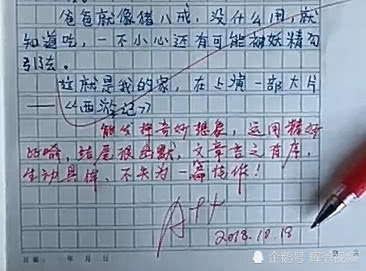 爸爸就像猪八戒，没什么用，就
知道吃，一不小心还有可能被妖精勾
引去。
这就是我的家，在上演一部大片
——《西游记》
能发挥奇妙想象，运用精妙
比喻，结尾很幽默，文章言之有序，
生动具体，不失为一篇佳作！
A++
2018.10.18
日期： 年 月 日
企鹅号